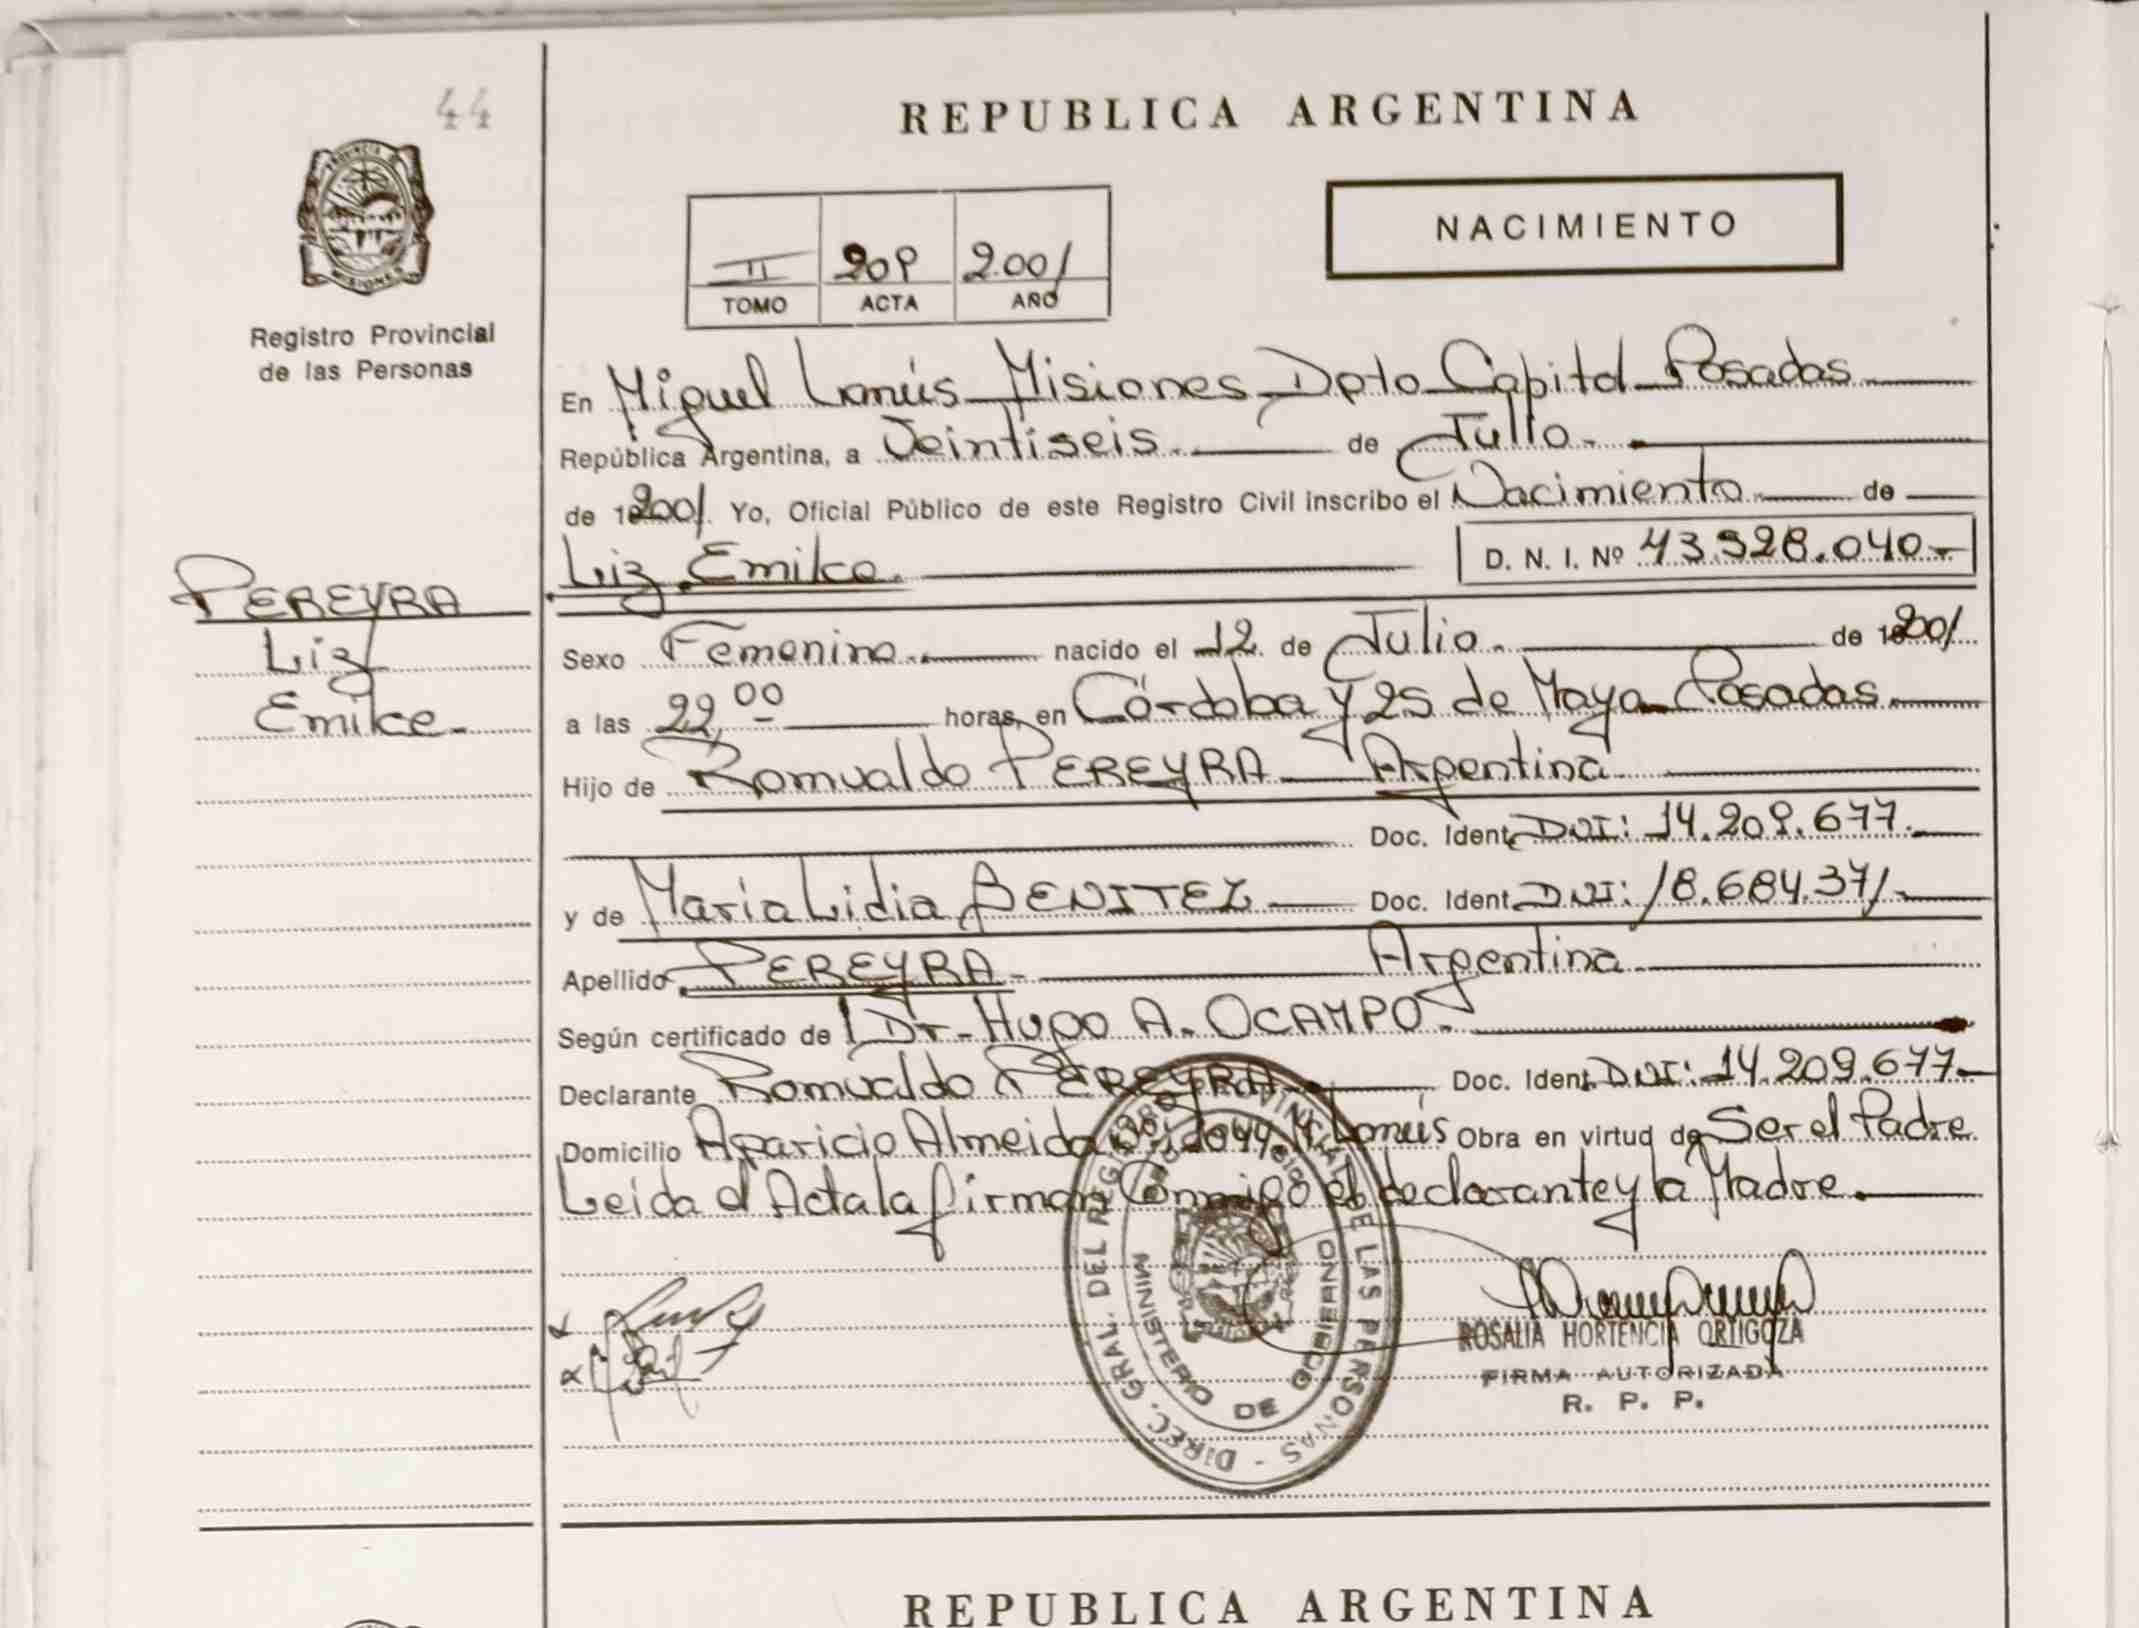 44
REPUBLICA ARGENTINA
PROVINCIA DE MISIONES
Registro Provincial
de las Personas
NACIMIENTO
II 209 2.001
TOMO ACTA AÑO
En Miguel Lanús Misiones Dpto Capital Posadas
República Argentina, a Veintiseis. de Julio.
de 2001. Yo, Oficial Público de este Registro Civil inscribo el Nacimiento de
Liz Emilce. D. N. I. Nº 43.528.040.-
PEREYRA
Liz
Emilce.
Sexo Femenino. nacido el 12. de Julio. de 2001
a las 22,00 horas, en Córdoba y 25 de Mayo Posadas.
Hijo de Romualdo PEREYRA Argentina
Doc. Ident. DNI: 14.209.677.
y de María Lidia BENITEZ Doc. Ident. DNI: 18.684.371.
Apellido PEREYRA. Argentina
Según certificado de Dr. Hugo A. OCAMPO.
Declarante Romualdo PEREYRA Doc. Ident. DNI: 14.209.677
Domicilio Aparicio Almeida M. Lanús Obra en virtud de Ser el Padre
Leída el Acta la firman Conmigo el declarante y la Madre.
DIREC. GRAL. DEL REGISTRO PROVINCIAL DE LAS PERSONAS
MINISTERIO DE GOBIERNO
ROSALIA HORTENCIA ORTIGOZA
FIRMA AUTORIZADA
R. P. P.
REPUBLICA ARGENTINA